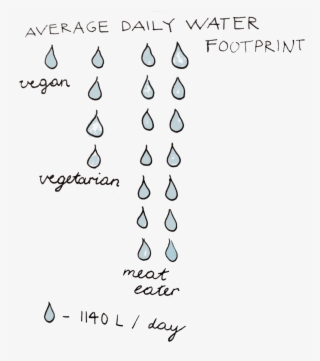 AVERAGE DAILY WATER
FOOTPRINT
vegan
vegetarian
meat
eater
- 1140 L / day